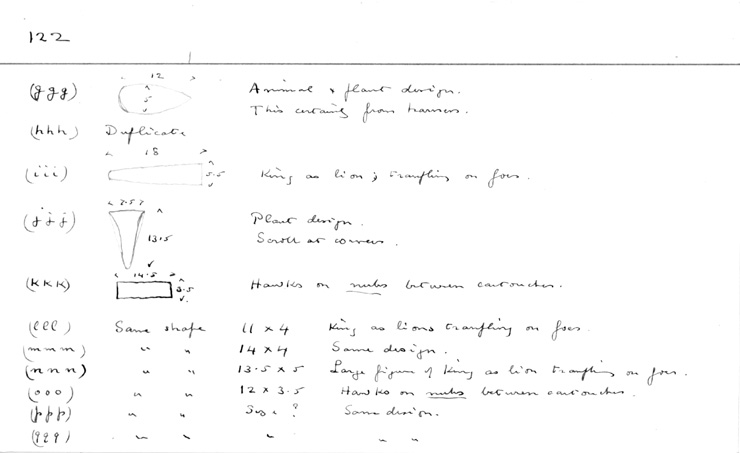 122
(ggg) 12 5 Animal & plant design.
This certainly from harness.
(hhh) Duplicate
(iii) 18 5.5 King as lion, trampling on foes.
(jjj) 7.5? 13.5 Plant design.
Scroll at corners.
(kkk) 14.5 3.5 Hawks on nubs between cartouches.
(lll) Same shape 11 x 4 King as lions trampling on foes.
(mmm) " " 14 x 4 Same design.
(nnn) " " 13.5 x 5 Large figure of King as lion trampling on foes.
(ooo) " " 12 x 3.5 Hawks on nubs between cartouches.
(ppp) " " Size ? Same design.
(qqq) " " " " "